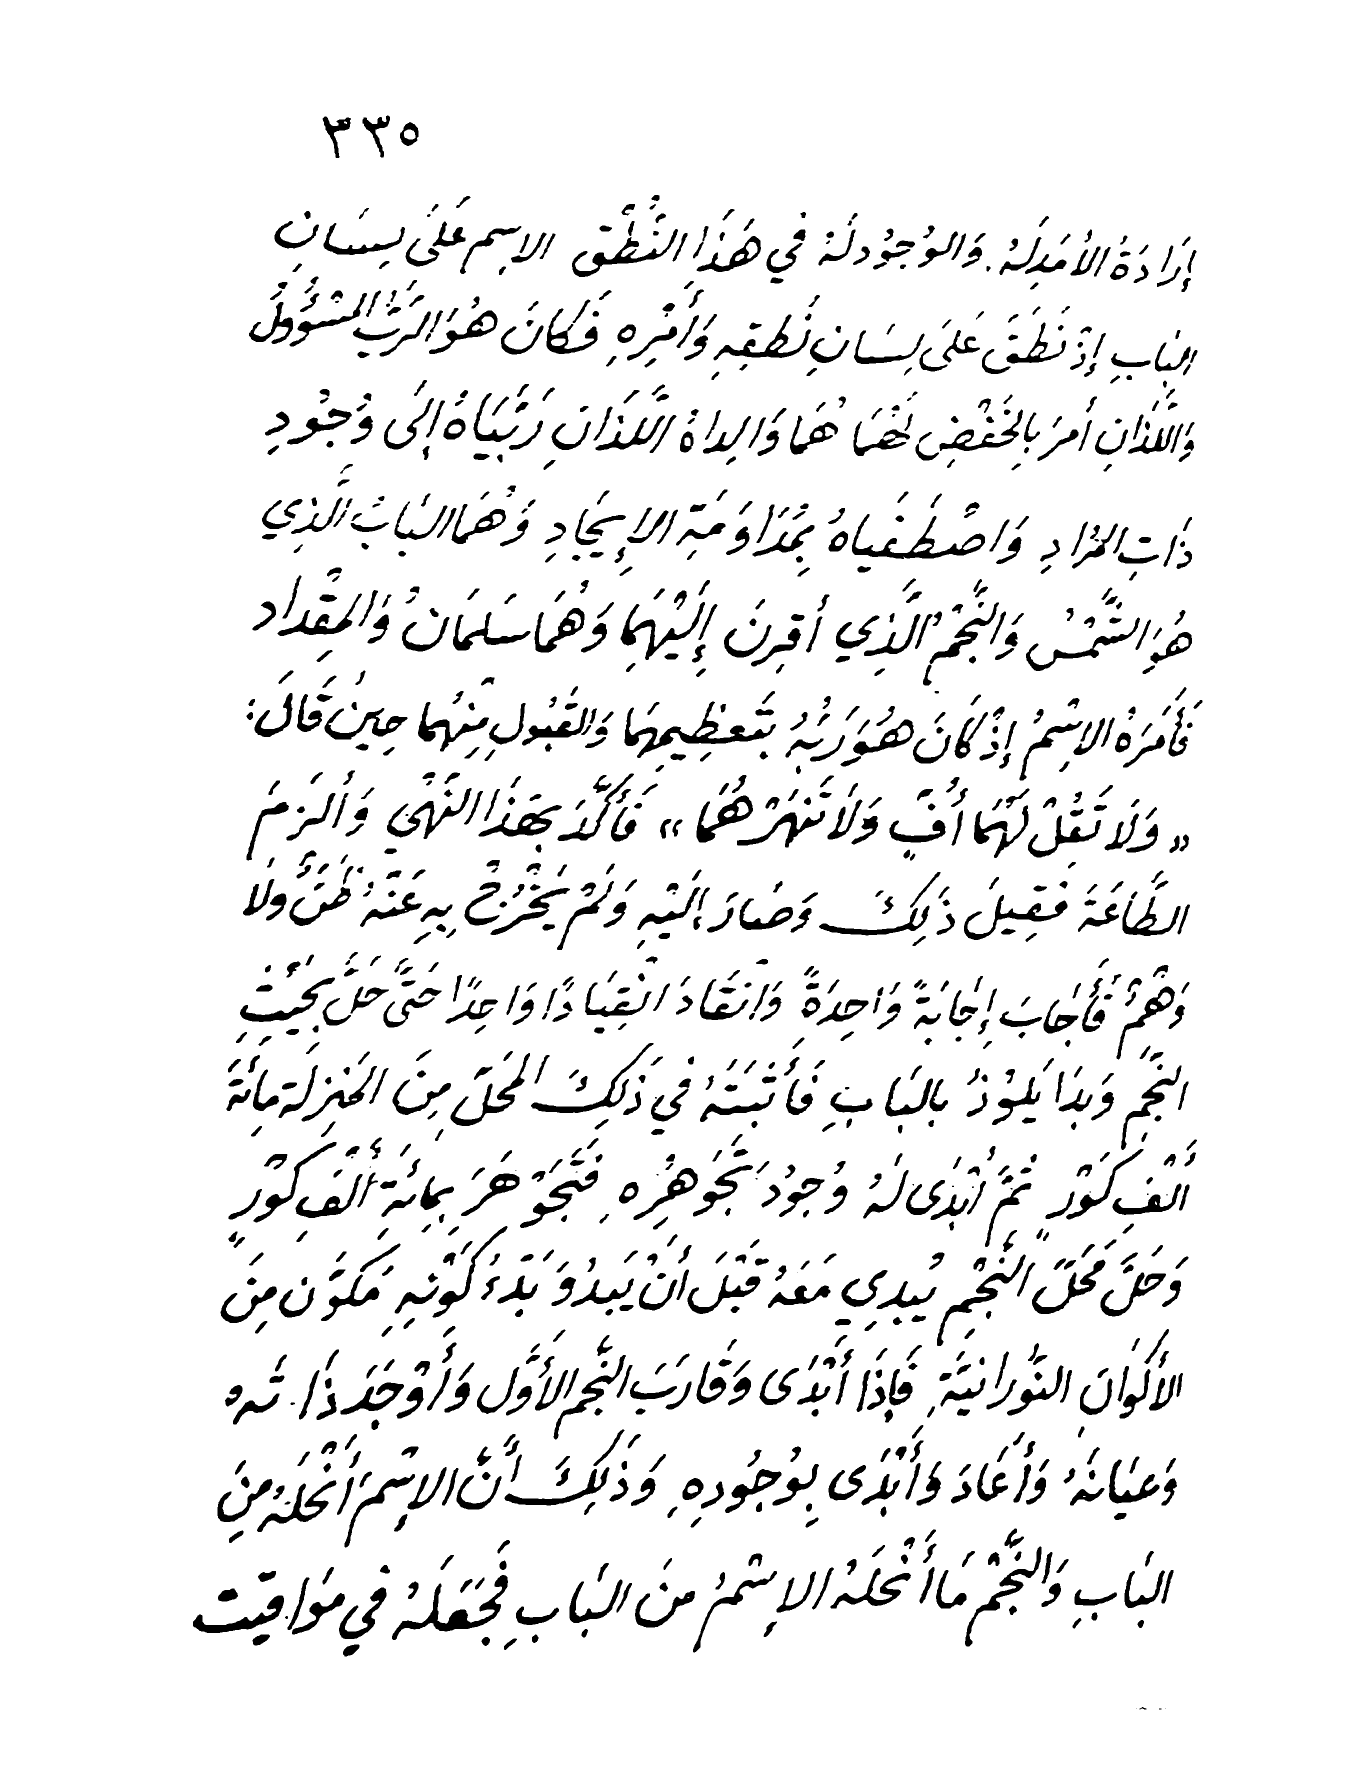 ٣٣٥
إِرَادَةُ الأُمَدِلَهُ. وَالوُجُودلَهُ في هَذَا النُّطْقِ الاِسِم عَلَىَ لِسَانِ
البَابِ إِذْ نَطَقَ عَلىَ لِسَانِ نُطقِهِ وَأَمْرِهِ فَكَانَ هُوَ الرَّبُّ المَسْؤُولُ
وَاللَّذَانِ أُمرَ بالخَفْضِ لَهُمَا هُمَا وَالِداهُ اللَّذَانِ رَبَّيَاهُ إِلَى وُجُودِ
ذَاتِ المُرَادِ وَاصْطَفَياهُ بِمُدَاوَمَةِ الإِيجَادِ وَهُمَا البَابُ الَّذِي
هُوَ الشَّمْسُ وَالنَّجْمُ الَّذِي أقرِنَ إِلَيْهِمَا وَهُمَا سَلمَانُ وَالمِقْدِاد
فَأَمَرَهُ الاِسْمُ إِذْ كَانَ هُوَ رَبُّهُ بتَعظِيمِهِمَا وَالقَبُولِ مِنهُما حِينَ قَالَ:
« وَلَا تَقُلْ لَهُمَا أُفٍّ وَلَا تَنْهَرْهُمَا » فَأَكَّدَ بهَذَا النَّهْي وَأَلزَمَ
الطَّاعَةَ فقِيلَ ذَلِكَ وَصَارَ إِلَيْهِ وَلَمْ يَخْرُجْ بِهِ عَنْهُ ظَنٌّ وَلَا
وَهْمٌ فَأَجَابَ إِجَابَةً وَاحِدَةً وَانقَادَ انْقِيَادًا وَاحِدًا حَتَّى حَلَّ بحَيْثِ
النَّجْمِ وَبدَا يَلوُذُ بالبَابِ فَأَثْبَتَهُ في ذَلِكَ المَحَلّ مِنَ المَنزِلَة مِائَةَ
أَلْفِ كَوْرٍ ثُمَّ أَبْدَى لَهُ وُجُودَ تَجَوهُرِهِ فَتَجَوْهَرَ بمِائَةِ أَلْفِ كَوْرٍ
وَحَلَّ مَحَلّ النَّجْمِ يُبدِي مَعَهُ قَبْلَ أَنْ يَبدُوَ بَدْءُ كَوْنهِ مَكوَّن مِنَ
الأَكوَانَ النُّورَانيَّةِ فَإِذَا أَبْدَى وَقَارَبَ النَّجم الأَوَّل وَأَوْجَدَ ذَاتَه
وَعيَانَهُ وَأَعَادَ وَأَبْدَى بِوُجُودِهِ وَذَلِكَ أَنَّ الاِسْمَ أَنْحَلَهُ مِنَ
البَابِ وَالنَّجْمِ مَا أَنْحَلَهُ الاِسْمُ منَ البَابِ فَجَعَلَهُ في مَوَاقيت